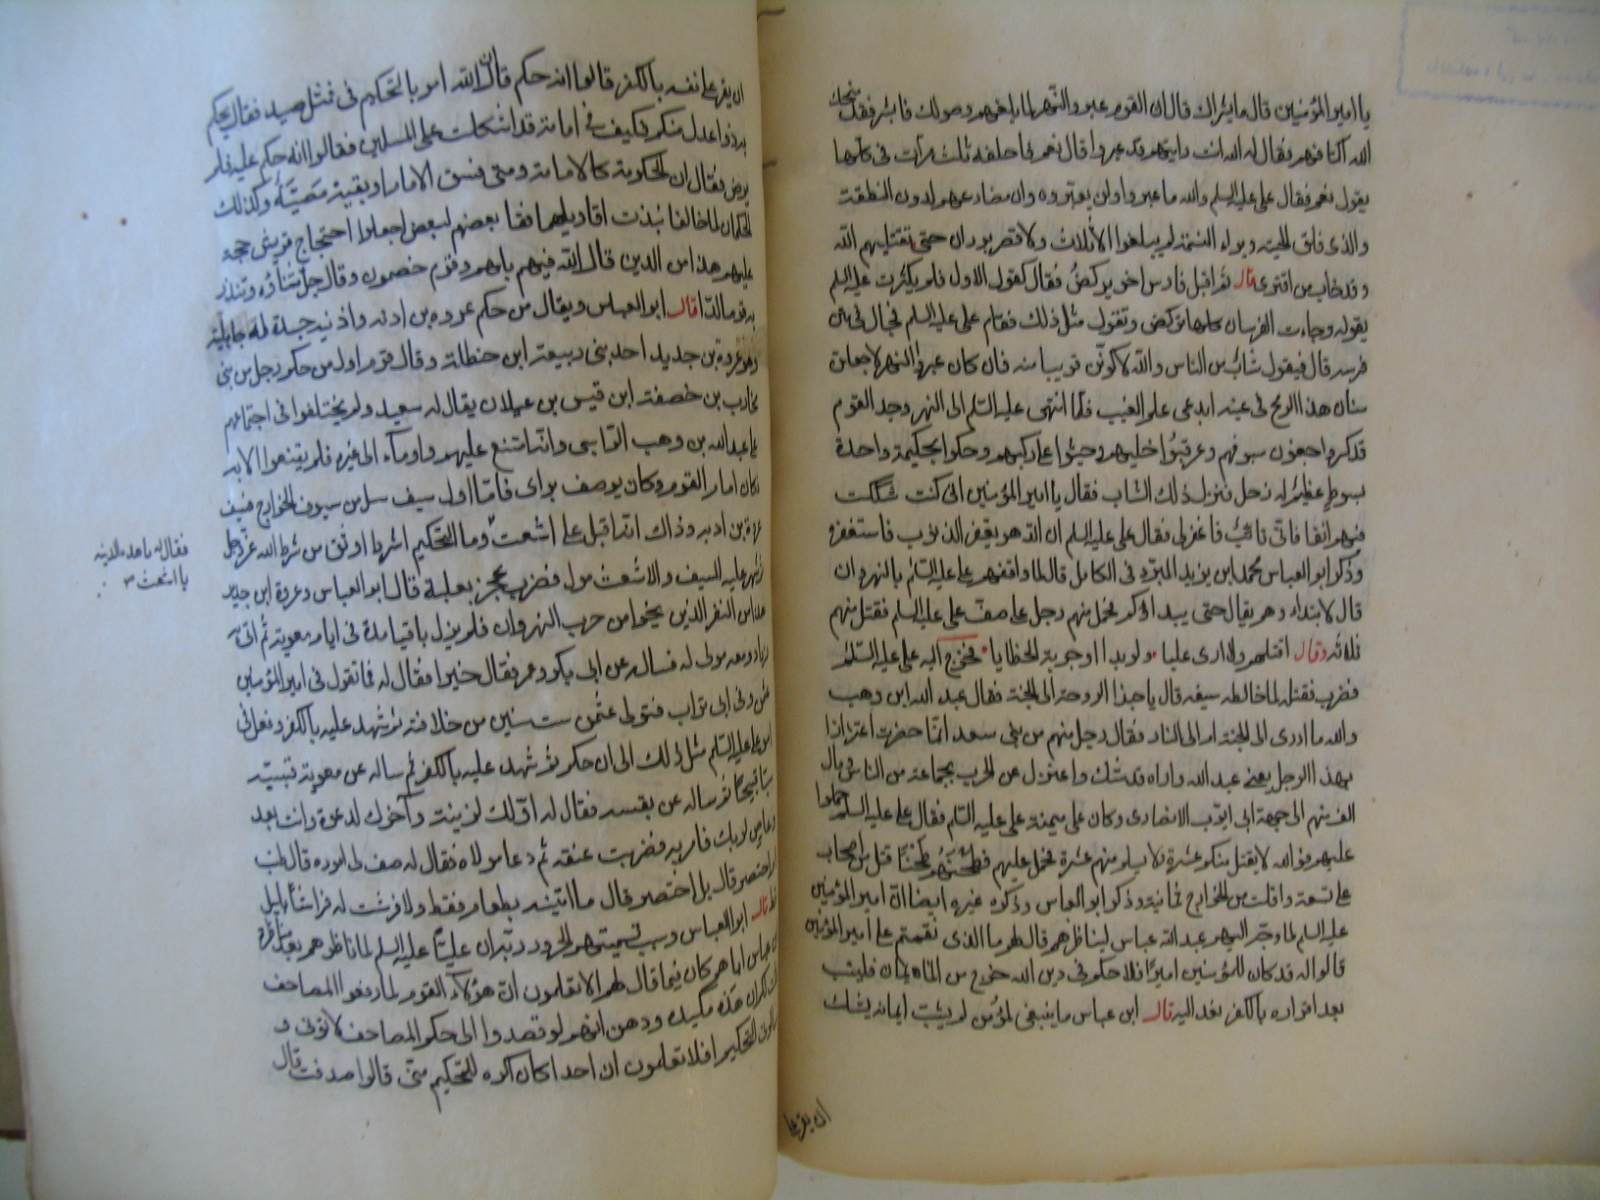 يا امير المؤمنين قال ما يشراك قال ان القوم عبروا النهر لما بلغهم وصولك فابشر فقد منحك
الله اكتافهم فقال له الله انت رايتهم قد عبروا قال نعم فاحلفه ثلث مرات في كلها
يقول نعم فقال علي عليه السلم والله ما عبروا ولن يعبروه وان مصارعهم لدون النطفة
والذي فلق الحبة وبرء النسمة لم يبلغوا الاثلاث ولا قصر بوران حتى يقتلهم الله
وقد خاب من افترى قال ثم اقبل فارس اخر يركض فقال كقول الاول فلم يكترث عليه السلم
بقوله وجاءت الفرسان كلها تركض وتقول مثل ذلك فقام علي عليه السلم فجال في متن
فرسه قال فيقول شاب من الناس والله لاكونن قريبا منه فان كان عبروا النهر لاجعلن
سنان هذا الرمح في عينه ايدعي علم الغيب فلما انتهى عليه السلم الى النهر وجد القوم
قد كسروا جفون سيوفهم وعرقبوا خيلهم وجثوا على ركبهم وحكموا بحكيمة واحدة
بصوت عظيم له زجل فنزل ذلك الشاب فقال يا امير المؤمنين اني كنت شككت
فيك انفا فاني تائب فاغفر لي فقال علي عليه السلم ان الله هو يغفر الذنوب فاستغفره
وذكر ابو العباس محمد ابن يزيد المبرد في الكامل قال لما واقفهم علي عليه السلم بالنهروان
قال لا تبداوهم بقتال حتى يبداوكم فحمل منهم رجل على صف علي عليه السلم فقتل منهم
ثلاثه وقال اقتلهم ولا ارى عليا ولو بدا اوجرته الخطايا فخرج اليه علي عليه السلم
فضربه فقتله لما خالطه سيفه قال يا حبذا الروحة الى الجنة فقال عبد الله ابن وهب
والله ما ادري الى الجنة ام الى النار فقال رجل منهم من بني سعد انما حضرت اغترارا
بهذا الرجل يعني عبد الله واراه قد شك واعتزل عن الحرب بجماعة من الناس ومال
الف منهم الى جهة ابي ايوب الانصاري وكان على ميمنة علي عليه السلم فقال علي عليه السلم احملوا
عليهم فوالله لا يقتل منكم عشرة ولا يسلم منهم عشرة فحمل عليهم فطحنهم طحنا قتل من اصحاب
علي تسعة وافلت من الخوارج ثمانية وذكر ابو العباس وذكره غيره ايضا ان امير المؤمنين
عليه السلم لما وجه اليهم عبد الله عباس ليناظرهم قال لهم ما الذي نقمتم على امير المؤمنين
قالوا له قد كان للمؤمنين اميرا فلما حكم في دين الله خرج من الايمان فليتب
بعد اقراره بالكفر نعد اليه قال ابن عباس ما ينبغي لمؤمن لم يشب ايمانه بشك
ان يقر على
ان يقر على نفسه بالكفر قالوا انه حكم قال ان الله امر بالتحكيم في قتل صيد فقال يحكم
به ذوا عدل منكم فكيف في امامة قد اشكلت على المسلمين فقالوا انه حكم عليه فلم
يرض فقال ان الحكومة كالامامة ومتى فسق الامام وجبت معصيته وكذلك
الحكمان لما خالفا نبذت اقاويلهما فقا بعضهم لبعض اجعلوا احتجاج قريش حجة
عليهم هذا من الذين قال الله فيهم بل هم قوم خصمون وقال جل ثناؤه وتنذر
به قوما لدا قال ابو العباس ويقال من حكم عروه بن ادية واذنيه جدة له جاهلية
وهو عروة بن جديد احد بني ربيعة ابن حنظلة وقال قوم اول من حكم رجل من بني
محارب بن خصفة ابن قيس بن عيلان يقال له سعيد ولم يختلفوا في اجتماعهم
على عبد الله بن وهب الراسبي وانه امتنع عليهم واوماء الى غيره فلم يقنعوا الا به
فكان امام القوم وكان يوصف براي فاما اول سيف سل من سيوف الخوارج فسيف
عروة بن ادية وذاك انه اقبل على اشعث وما التحكيم اشرط اوثق من شرط الله عز وجل
فقال له ما هذه الدنية
يا اشعث
ثم شهر عليه السيف والاشعث مول فضرب عجز بغلته قال ابو العباس وعروة ابن جدير
هذا من النفر الذين نجوا من حرب النهروان فلم يزل باقيا مدة في ايام معوية ثم اتي به
زياد ومعه مولى له فساله عن ابي بكر وعمر فقال خيرا فقال له فما تقول في امير المؤمنين
عثمن وفي ابي تراب فتولى عثمن ست سنين من خلافته ثم شهد عليه بالكفر وفعل في
امر علي عليه السلم مثل ذلك الى ان حكم ثم شهد عليه بالكفر ثم ساله عن معوية فسبه
سبا قبيحا ثم ساله عن نفسه فقال له اولك لزنية وآخرك لدعوة وانت بعد
عاص لربك فامر به فضربت عنقه ثم دعا مولاه فقال له صف لي اموره قال اطنب
ام اختصر قال بل اختصر قال ما اتيته بطعام فقط ولا فرشت له فراشا بليل
قط قال ابو العباس وسبب تسميتهم الحرورية ان عليا عليه السلم لما ناظرهم بعد مناظرة
ابن عباس اياهم كان فيما قال لهم الا تعلمون ان هؤلاء القوم لما رفعوا المصاحف
قلت لكم ان هذه مكيدة ووهن انهم لو قصدوا الى حكم المصاحف لاتوني و
سالوني التحكيم افلا تعلمون ان احدا كان اكره للتحكيم مني قالوا صدقت قال